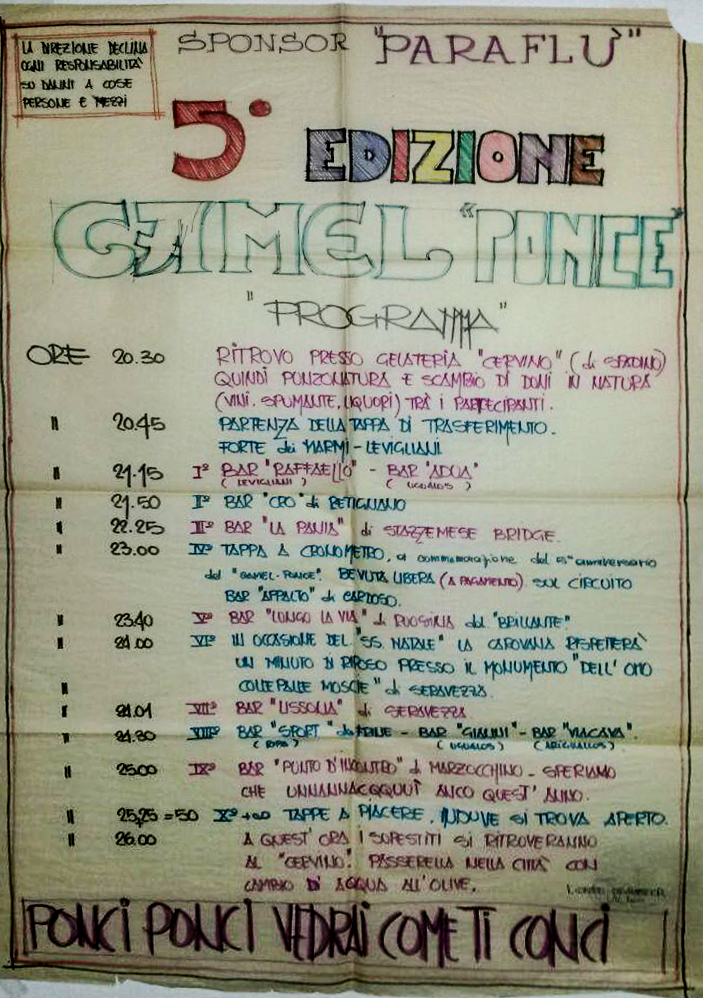 LA DIREZIONE DECLINA
OGNI RESPONSABILITÀ
SU DANNI A COSE
PERSONE E MEZZI
SPONSOR "PARAFLÙ"
5° EDIZIONE
GAMEL "PONCE"
"PROGRAMMA"
ORE 20.30 RITROVO PRESSO GELATERIA "CERVINO" (di SPADINO)
QUINDI PUNZONATURA E SCAMBIO DI DONI IN NATURA
(VINI. SPUMANTE, LIQUORI) TRÀ I PARTECIPANTI.
" 20.45 PARTENZA DELLA TAPPA DI TRASFERIMENTO.
FORTE dei MARMI - LEVIGLIANI
" 21.15 I° BAR "RAFFAELLO" - BAR "ADUA"
(LEVIGLIANI) (UGUALOS)
" 21.50 II° BAR "CRO" di RETIGNANO
" 22.25 III° BAR "LA PANIA" di STAZZEMESE BRIDGE.
" 23.00 IV° TAPPA A CRONOMETRO, a commemorazione del 5° anniversario
del "GAMEL-PONCE". BEVUTA LIBERA (A PAGAMENTO) SUL CIRCUITO
BAR "APPALTO" di CARDOSO.
" 23.40 V° BAR "LUNGO LA VIA" di RUOSINA del "BRILLANTE"
" 24.00 VI° IN OCCASIONE DEL "SS. NATALE" LA CAROVANA RISPETTERÀ
UN MINUTO DI RIPOSO PRESSO IL MONUMENTO "DELL' OMO
" COLLE PALLE MOSCIE" di SERAVEZZA.
" 24.01 VII° BAR "LISSONIA" di SERAVEZZA
" 24.30 VIII° BAR "SPORT" - BAR "GIANNI" - BAR "VIACAVA".
(RIPA) (UGUALOS) (ARIGUALLOS)
" 25.00 IX° BAR "PUNTO D'INCONTRO" di MARZOCCHINO - SPERIAMO
CHE ANCO QUEST' ANNO.
" 25,25 = 50 X° +∞ TAPPE A PIACERE, INDUVE SI TROVA APERTO.
" 26.00 A QUEST' ORA I SUPESTITI SI RITROVERANNO
AL "CERVINO". PASSERELLA NELLA CITTÀ CON
CAMBIO DI ACQUA ALL'OLIVE.
PONCI PONCI VEDRAI COME TI CONCI